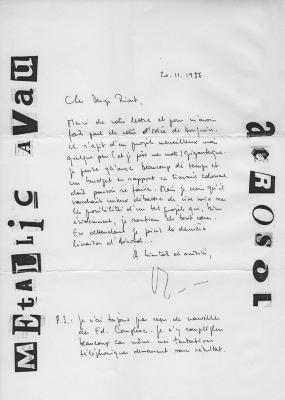 METALLIC AVAU
20.11.1988
Cher Serge Pinart,
Merci de votre lettre et pour m'avoir
fait part de votre d'idée de bouquin.
Il s'agit d'un projet merveilleux mais
quelque peu (et je pèse mes mots) gigantesque.
Je pense qu'avec beaucoup de temps et
un budget en rapport ce travail colossal
doit pouvoir se faire. Mais je crois qu'il
vaudrait mieux débattre de vive voix sur
les possibilités d'un tel projet que, bien
évidemment, je soutiens de tout cœur.
En attendant je pris la dernière
livraison d'
A bientôt et amitiés,
P.S.: Je n'ai toujours pas reçu de nouvelles
de Ed. Complexe. Je n'y comprends plus
beaucoup car même mes tentatives
téléphoniques demeurent sans résultat.
AEROSOL